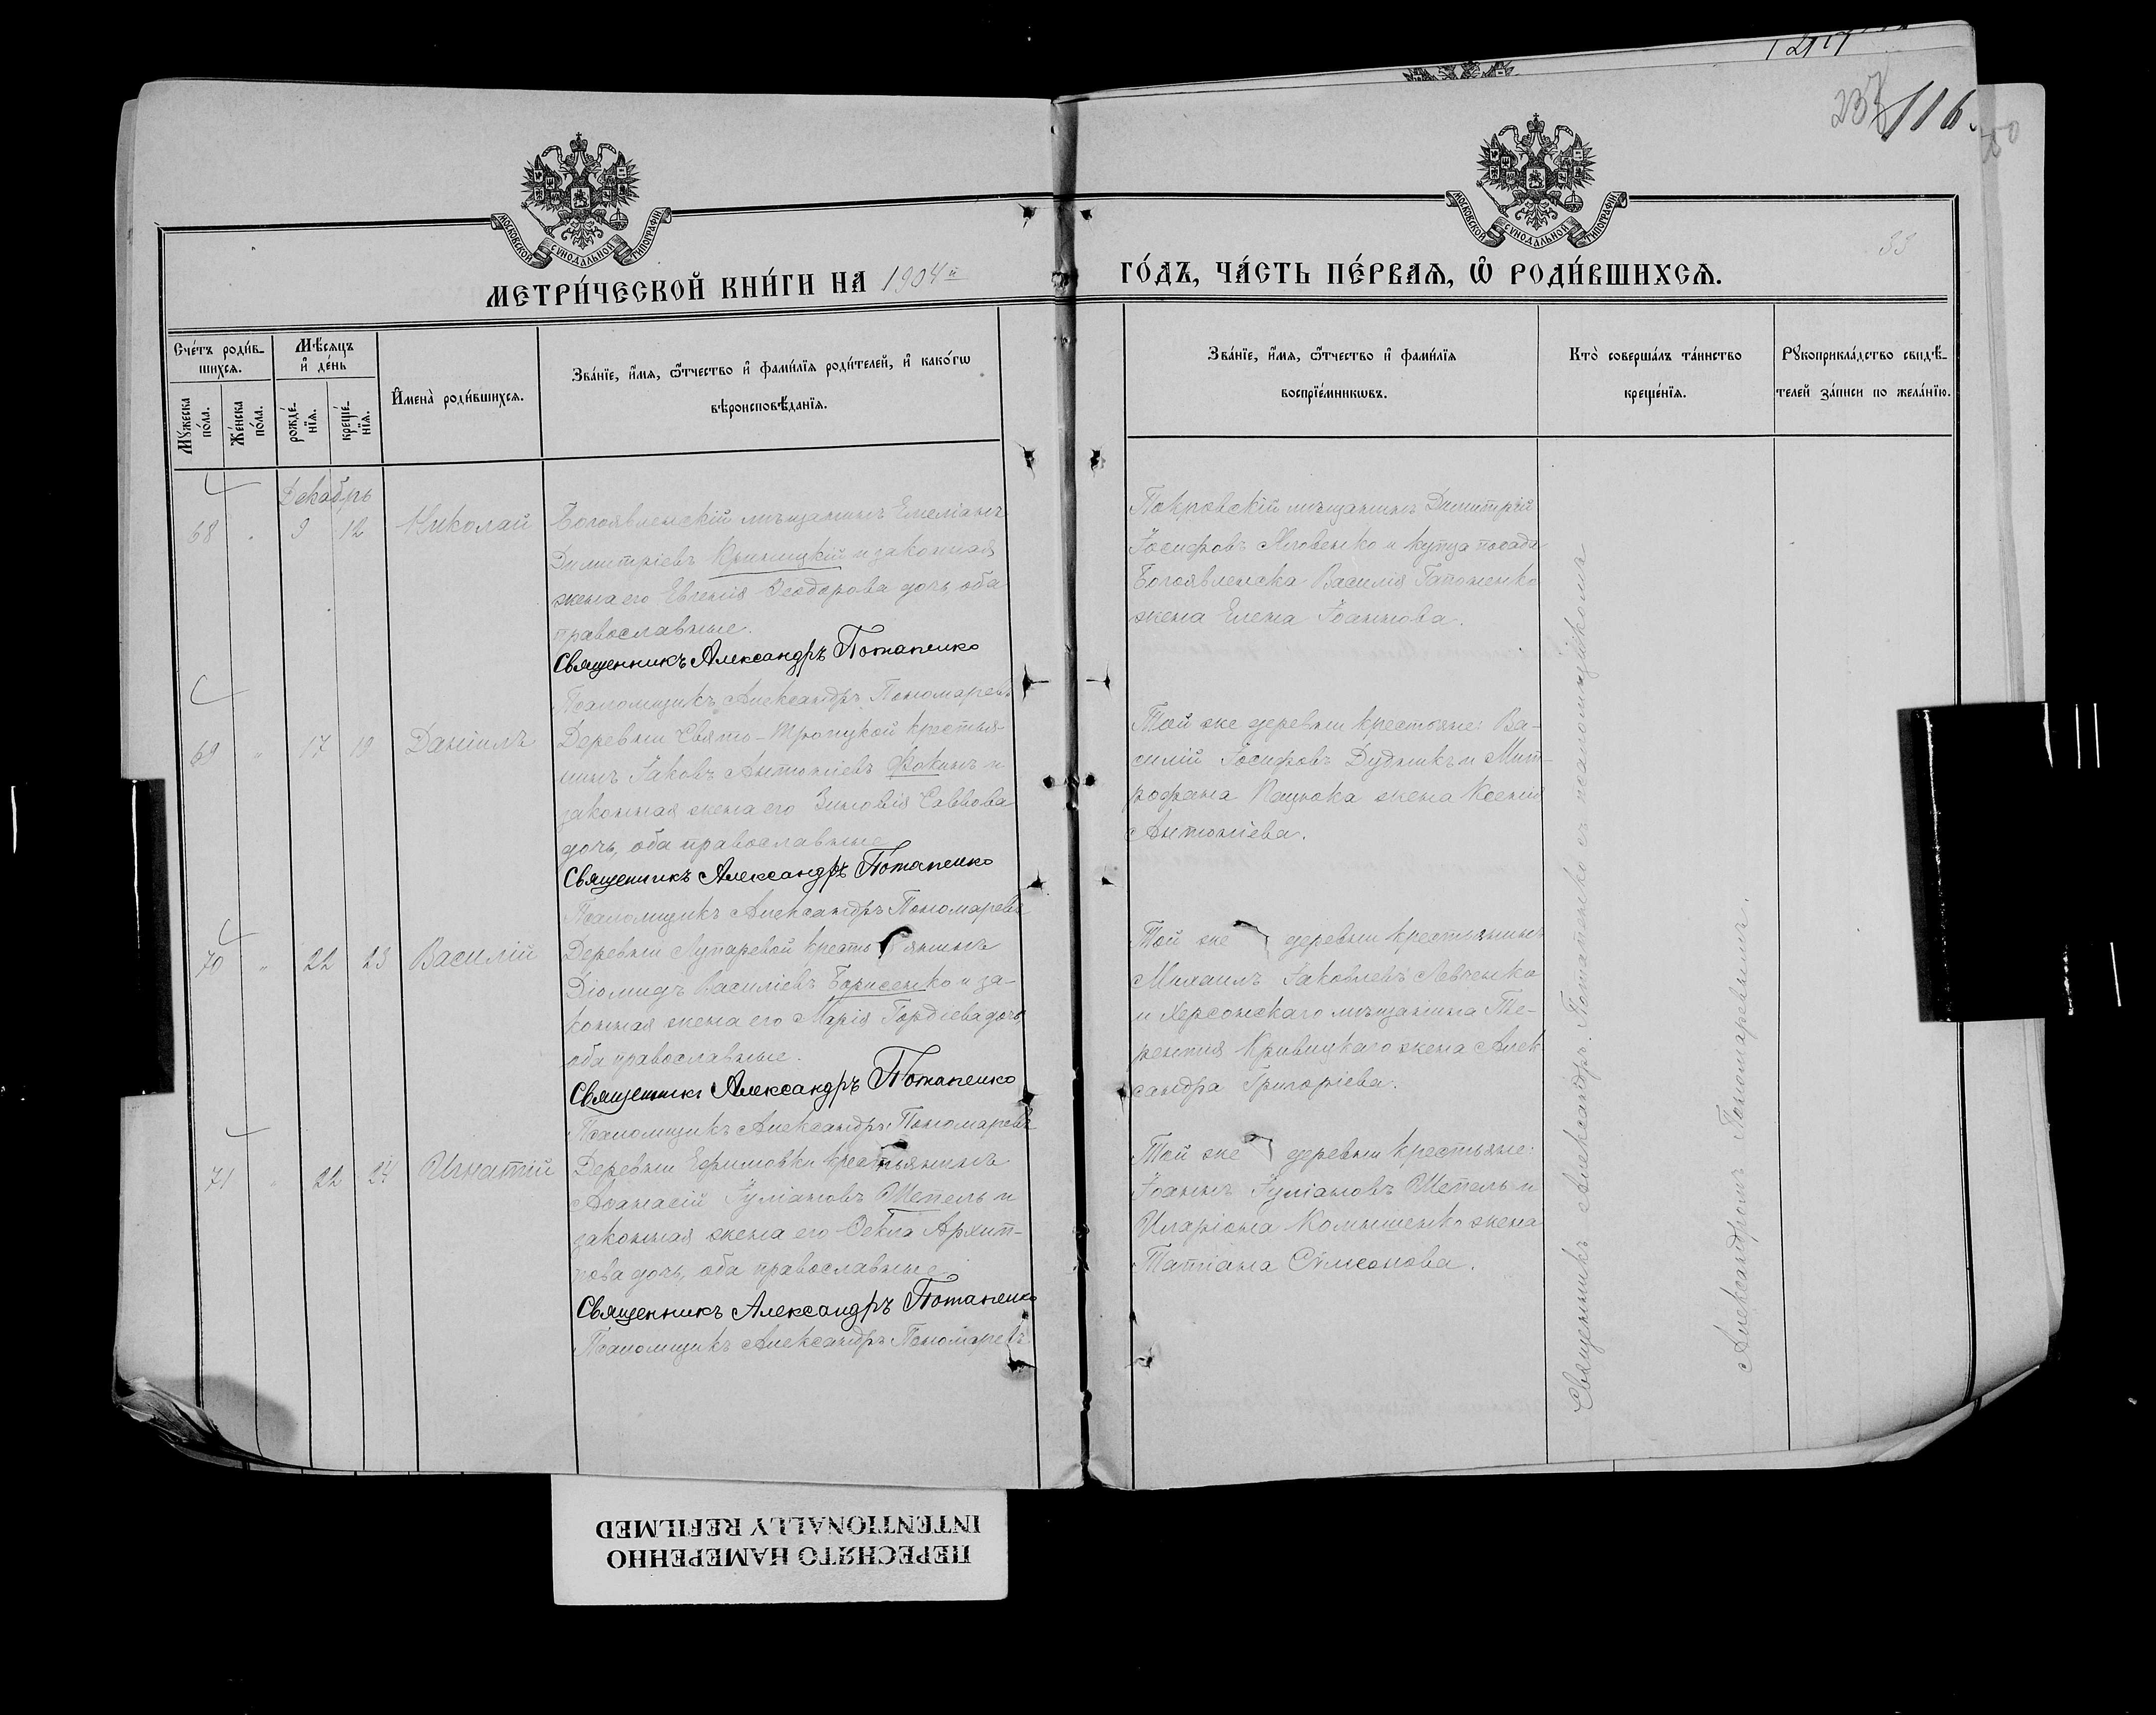 237
116.
МОСКОВСКОЙ СѴНОДАЛЬНОЙ ТИПОГРАФІИ
МОСКОВСКОЙ СѴНОДАЛЬНОЙ ТИПОГРАФІИ
33
МЕТРИ́ЧЕСКОЙ КНИ́ГИ НА 1904й
ГО́ДЪ, ЧА́СТЬ ПЕ́РВАѦ, Ѽ РОДИ́ВШИХСѦ.
Сче́тъ роди́в-
шихсѧ.
Мꙋжеска по́ла.
Же́нска по́ла.
Мѣ́сѧцъ
и҆ де́нь
рожде́-
нїѧ.
креще́-
нїѧ.
И҆мена̀ роди́вшихсѧ.
Зва́нїе, и҆́мѧ, ѻ҆́тчество и҆ фами́лїѧ роди́телей, и҆ како́гѡ
вѣроисповѣ́данїѧ.
Зва́нїе, и҆́мѧ, ѻ҆́тчество и҆ фами́лїѧ
воспрїе́мникѡвъ.
Кто̀ соверша́лъ та́инство
креще́нїѧ.
Рꙋкоприкла́дство свидѣ́-
телей за́писи по жела́нїю.
Декабрь
68 " 9 12 Николай
Богоявленскій мѣщанинъ Емеліанъ
Димитріевъ Криницкій и законная
жена его Евгенія Ѳеодорова дочь, оба
православные.
Священникъ Александръ Потапенко
Псаломщикъ Александръ Пономаревъ
Покровскій мѣщанинъ Димитрій
Іосифовъ Яловенко и купца посада
Богоявленска Василія Гапоненко
жена Елена Іоаннова.
69 " 17 19 Даніилъ
Деревни Свято-Троицкой крестья-
нинъ Іаковъ Антоніевъ Фокинъ и
законная жена его Зиновія Саввова
дочь, оба православные
Священникъ Александръ Потапенко
Псаломщикъ Александръ Пономаревъ
Той же деревни крестьяне: Ва-
силій Іосифовъ Дудникъ и Мит-
рофана Пацюка жена Ксенія
Антоніева.
70 " 22 23 Василій
Деревни Лупаревой крестьянинъ
Діомидъ Василіевъ Борисенко и за-
конная жена его Марія Гордіева дочь,
оба православные.
Священникъ Александръ Потапенко
Псаломщикъ Александръ Пономаревъ
Той же деревни крестьянинъ
Михаилъ Іаковлевъ Левченко
и Херсонскаго мѣщанина Те-
рентія Кривицкаго жена Алек-
сандра Григоріева.
71 " 22 24 Игнатій
Деревни Ефимовки крестьянинъ
Аѳанасій Іуліановъ Шепель и
законная жена его Ѳекла Архип-
пова дочь, оба православные.
Священникъ Александръ Потапенко
Псаломщикъ Александръ Пономаревъ
Той же деревни крестьяне:
Іоаннъ Іуліановъ Шепель и
Иларіона Комишенко жена
Татіана Симеонова.
Священникъ Александръ Потапенко съ псаломщикомъ
Александромъ Пономаревымъ.
ПЕРЕСНЯТО НАМЕРЕННО
INTENTIONALLY REFILMED